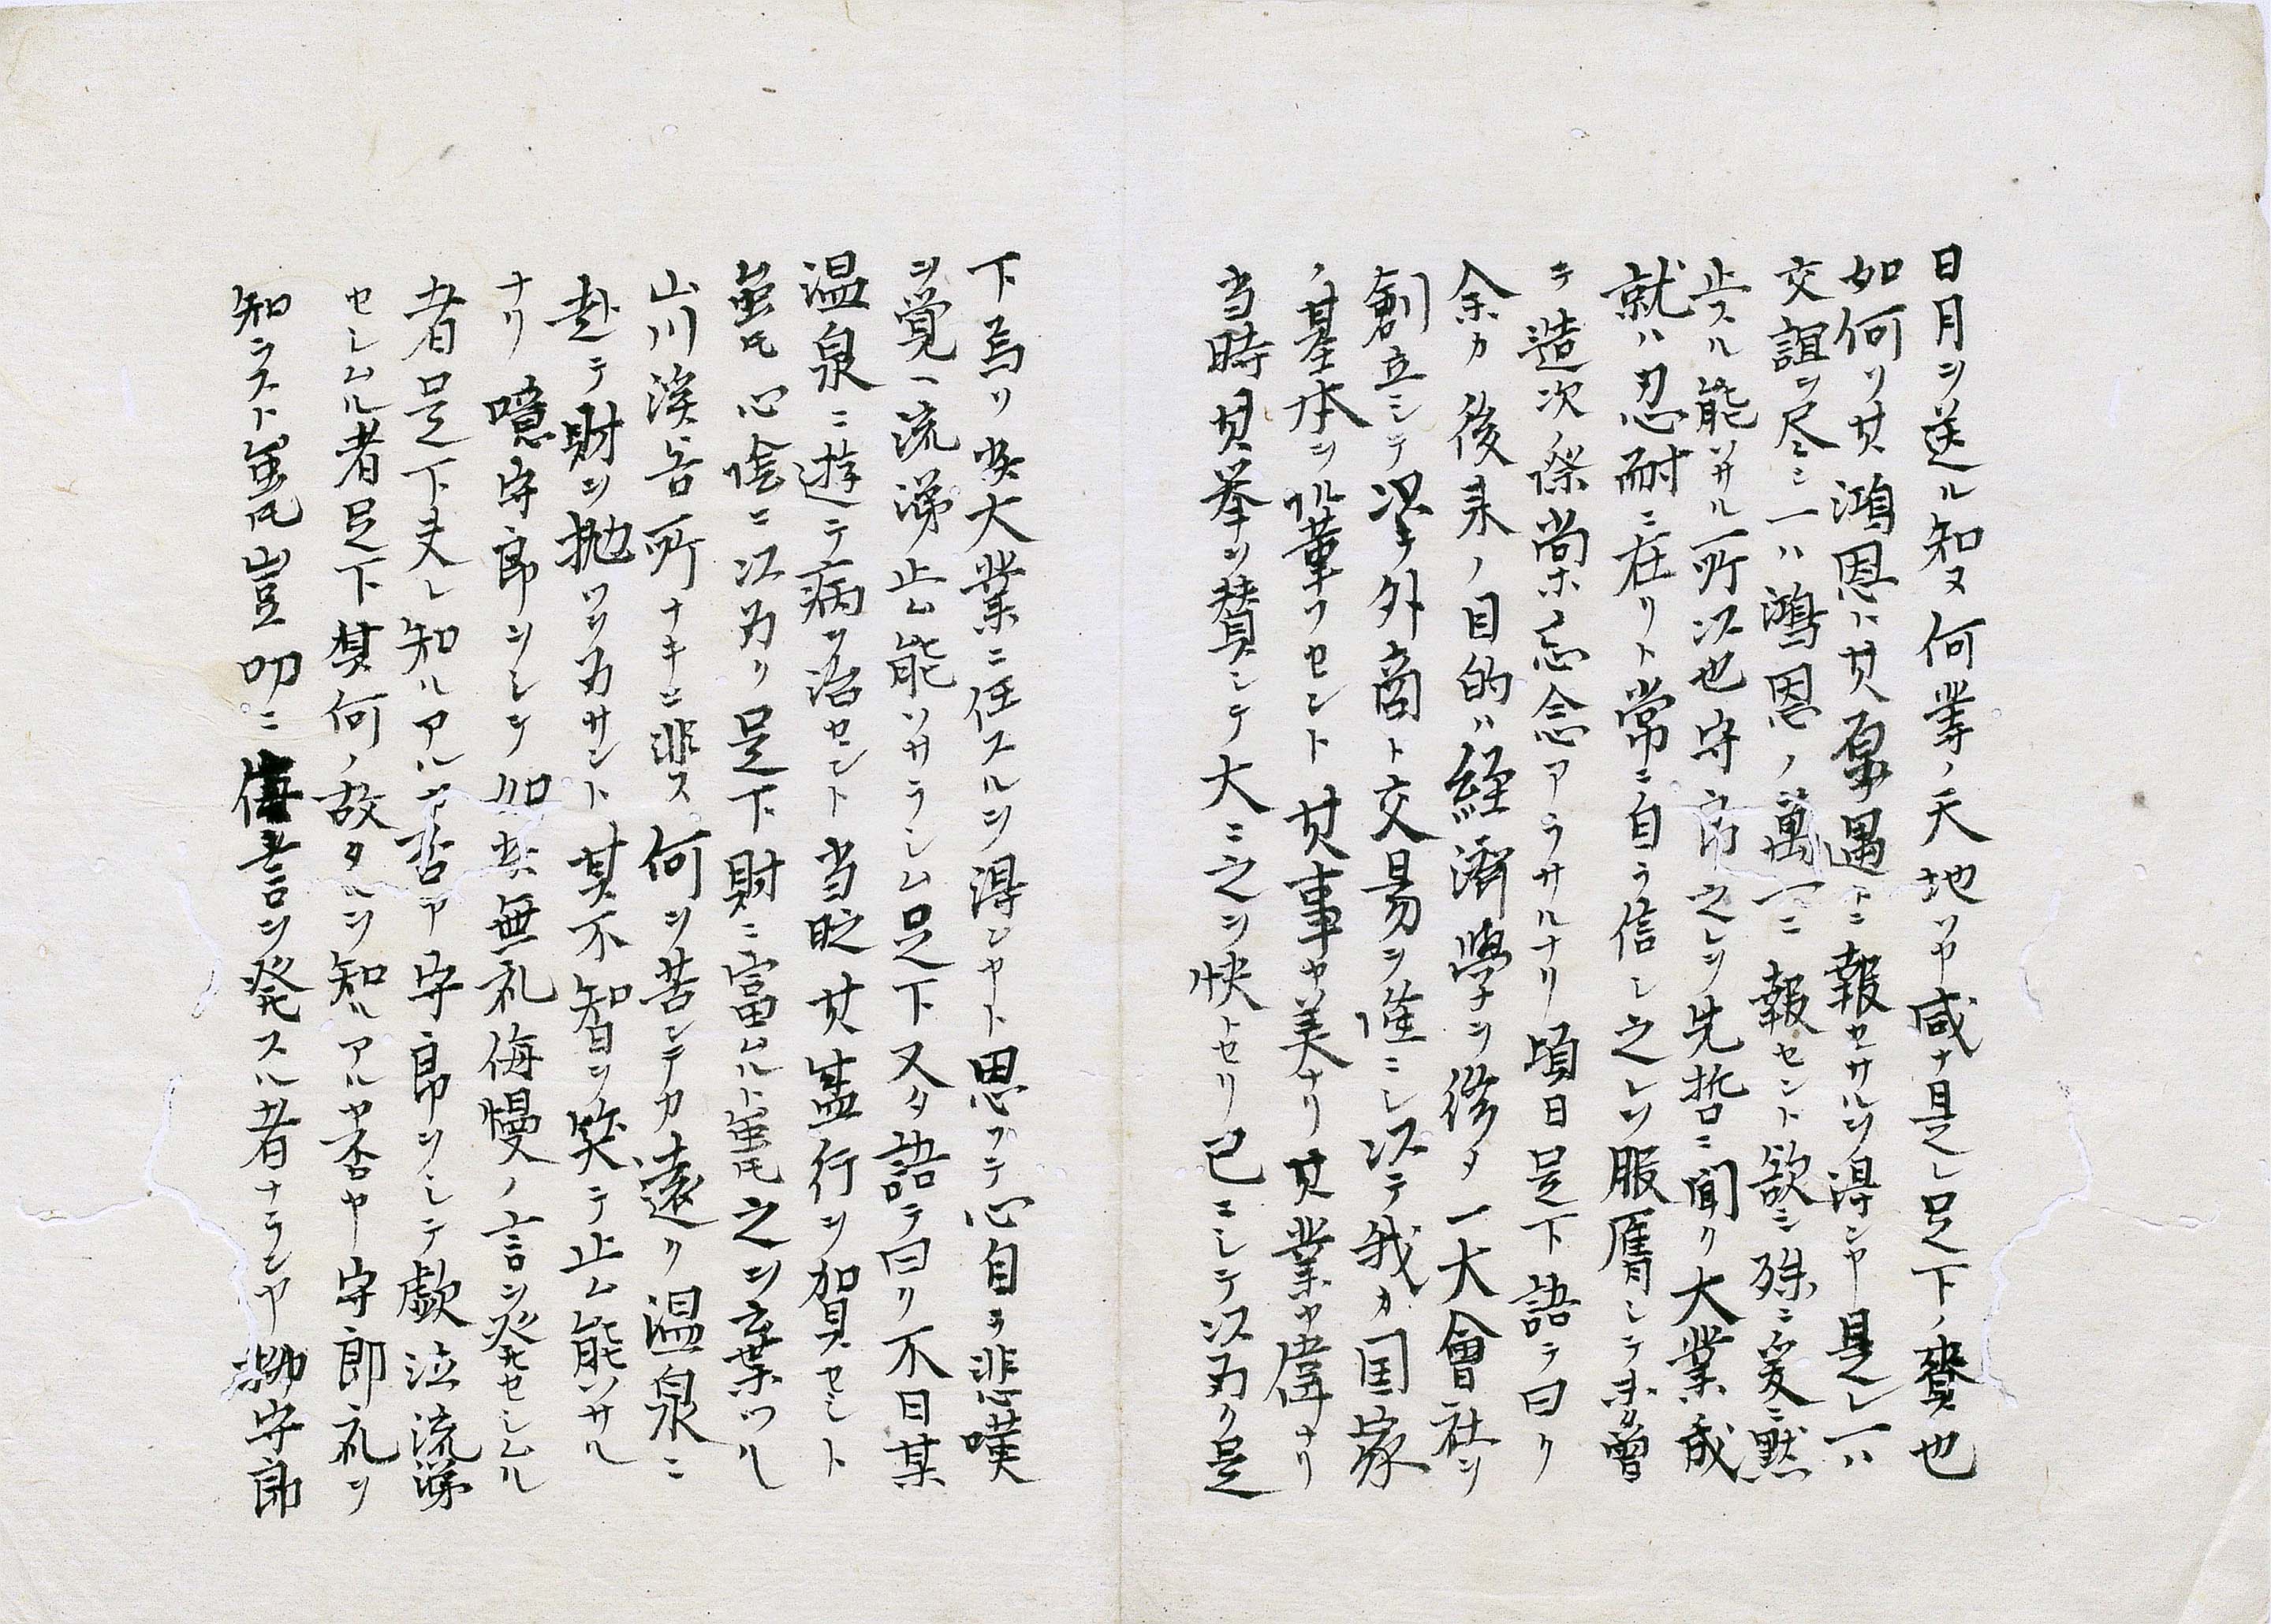 日月ヲ送ル知ヌ何業ノ天地ソヤ咸ナ是レ足下ノ賚也
如何リ其鴻恩ニ其厚遇トニ報セサルヲ得ンヤ是レ一ハ
交誼ヲ尽シ一ハ鴻恩ノ萬一ニ報セント欲シ殊ニ爰ニ黙
止スル能ワサル所以也守郎之レヲ先哲ニ聞ク大業ノ成
就ハ忍耐ニ在リト常ニ自ラ信シ之レヲ服膺シテ未タ曽
テ造次ノ際尚ホ忘念アラサルナリ頃日足下語テ曰ク
余カ後来ノ目的ハ経濟學ヲ修メ一大會社ヲ
創立シテ汎ク外商ト交易ヲ盛ニシ以テ我カ国家
ノ基本ヲ鞏フセント其事ヤ美ナリ其業ヤ偉ナリ
当時其挙ヲ賛シテ大ニ之ヲ快トセリ已ニシテ以為ク是
下焉リ此大業ニ任スルヲ得ンヤト思フテ心自ラ悲嘆
ヲ覚ヘ流涕止ム能ワサラシム足下又タ語テ曰リ不日某
温泉ニ遊テ病ヲ治セント当时其盛行ヲ賀セント
雖モ心陰ニ以為リ足下財ニ富ムト雖モ之ヲ棄ツル
山川渓谷所ナキニ非ス何ヲ苦シテカ遠ク温泉ニ
赴テ財ヲ抛ツヲ為サント其不智ヲ笑テ止ム能ワサル
ナリ噫守郎ヲシテ如此無礼侮慢ノ言ヲ発セシムル
者足下夫レ知ルアルカ否ヤ守郎ヲシテ歔泣流涕
セシムル者足下其何ノ故タルヲ知ルアルヤ否ヤ守郎礼ヲ
知ラスト雖モ豈叨ニ侮言ヲ発スル者ナランヤ抑守郎